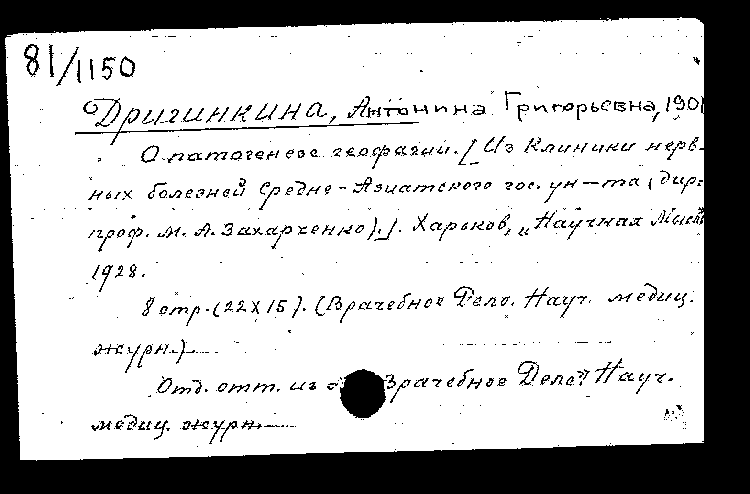 81/1150
Дригинкина, Антонина Григорьевна, 190
О патогенезе геофагии. [Из Клиники нерв-
ных болезней Средне-Азиатского гос. ун-та (дир.
проф. М. А. Захарченко).]. Харьков, „Научная Мысль
1928.
8 стр. (22х15). (Врачебное Дело. Науч. медиц.
журн.)
Отд. отт. из Врачебное Дело". Науч.
медиц. журн.